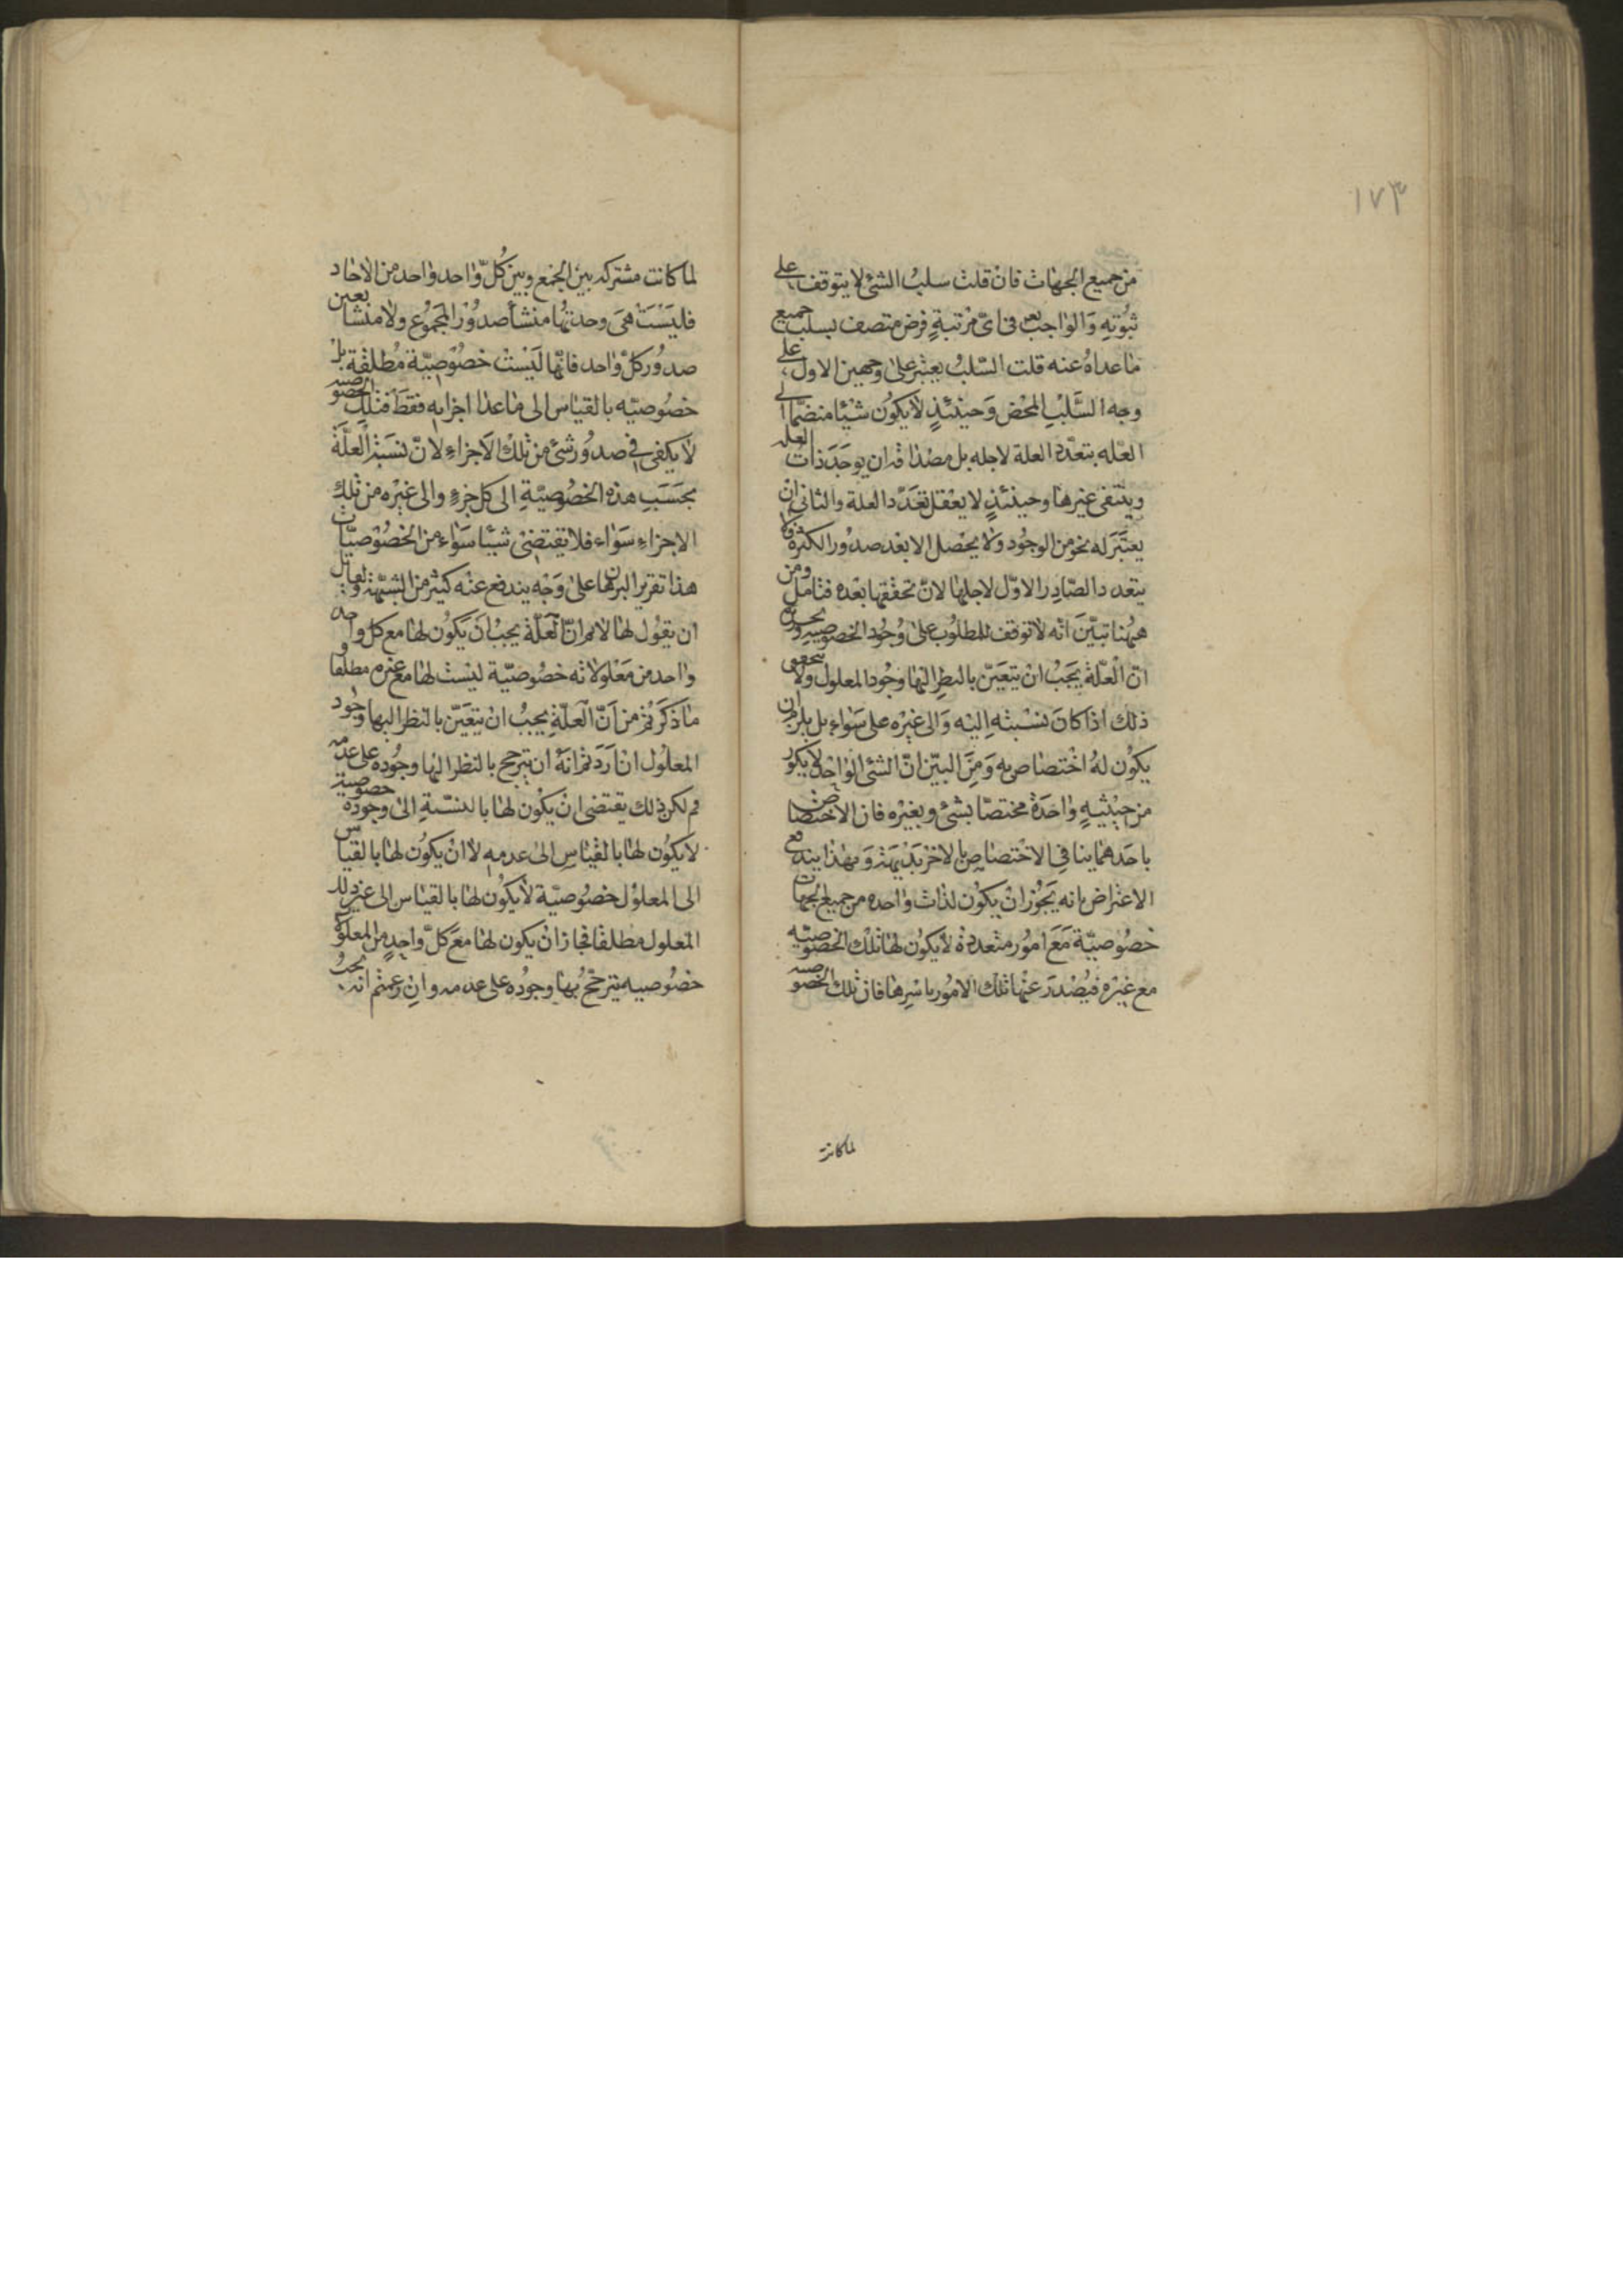 ١٧٣
من جميع الجهات فان قلت سلب الشئ لا يتوقف على
ثبوته والواجب تعالى في اىّ مرتبةٍ فرض متصف بسلب جميع
ما عداه عنه قلت السّلب يعتبر على وجهين الاول على
وجه السَّلْبِ المحْض وَحينئذٍ لا يكون شيئا منضمّا الى
العلّه بتعدّد العلة لاجله بل مصداقه ان يوجَدَ ذات العلة
وينتفى غيرها وحينئذٍ لا يعقل تعَدّد العلة والثانى ان
يعتَبَر له نحو من الوجود ولا يحصل الا بعد صدور الكثرة فلا
يتعدد الصّادِر الاوّل لاجلها لانّ تحقّقها بعْده فتامل ومن
ههُنا تبيّنَ انّه لا توقف للمطلوب على وُجُود الخصوصية
انّ العلّة يَجَبُ انْ يتعَيّن بالنظرِ اليها وجُود المعلول ولا يتحقق
ذلك اذا كانَ نسْبته اِليْه وَالى غيْره على سَوَاء بل يلزم ان
يكون لهُ اختصاص به وَمِنَ البيّن انّ الشئ الواحد لا يكون
من حيْثيةٍ واحَدةٍ مختصّا بشئ وبغيْره فان الاختصاص
باحَدهما ينافى الاختصاص بالاخر بَديهَة وَبهذا يندفع
الاعتراض بانه يَجوز انْ يكون لذات واحده من جميع الجهات
خصُوصيّة مَعَ امُور متعددة لا يكون لها تلك الخصوصيّه
مع غيْره فيُصْدَر عنها تلك الامُور باسْرِها فان تلك الخصوصيه
لما كانت
لما كانت مشتركه بين الجمع وبين كُلّ وَاحد وَاحد من الآحاد
فليَسَت هىَ وحدتها منشأ صدُور المجَمُوع ولا منشأ بعين
صدوُر كلّ واحد فانّها لَيْسَتْ خصُوصِيّة مُطلقة بل
خصُوصيّه بالقياس الى ما عدا اجزايه فقَط فتلك الخصوصيه
لا يكفى فى صدوُر شئ من تلك الاَجزاءِ لانّ نسَبَة العلّة
بحَسَبِ هذه الخصُوصيّةِ الى كل جزءٍ والى غيْره من تلك
الاجزاءِ سَوَاء فلا يقتضى شيئا سَوَاء من الخصُوصيّات
هذا تقرير البرهان على وَجْه يندفع عنْه كثير من الشبَهة ولقائل
ان يقول لها لا نم انّ العَلّة يجبُ انَ يكُون لها مع كل واحد
واحد من مَعْلولاته خصُوصيّة ليْسَت لها مع غيره مطلقا و
ما ذكَرَتُمْ من اَنّ العَلّةِ يجبُ ان يتعَيّن بالنظر اليها وجُود
المعلول ان ارَدَتم انَهُ ان يترجح بالنظر اليها وجُوده على عدمه
فم لكن ذلك يقتضى ان يكُون لها بالنسّبةِ الى وجوده خصوصية
لا يكُون لها بالقيْاسِ الى عدمهِ لا انْ يكوُن لها بالقياس
الى المعلوْل خصُوصيّة لا يكُون لها بالقياس الى غير ذلك
المعلول مطلقا فجاز ان يكون لها معَ كلّ واحدٍ من المعلولات
خصُوصيه يترجّحُ بها وجُوده على عدمه وان زعمتم انه يجبُ